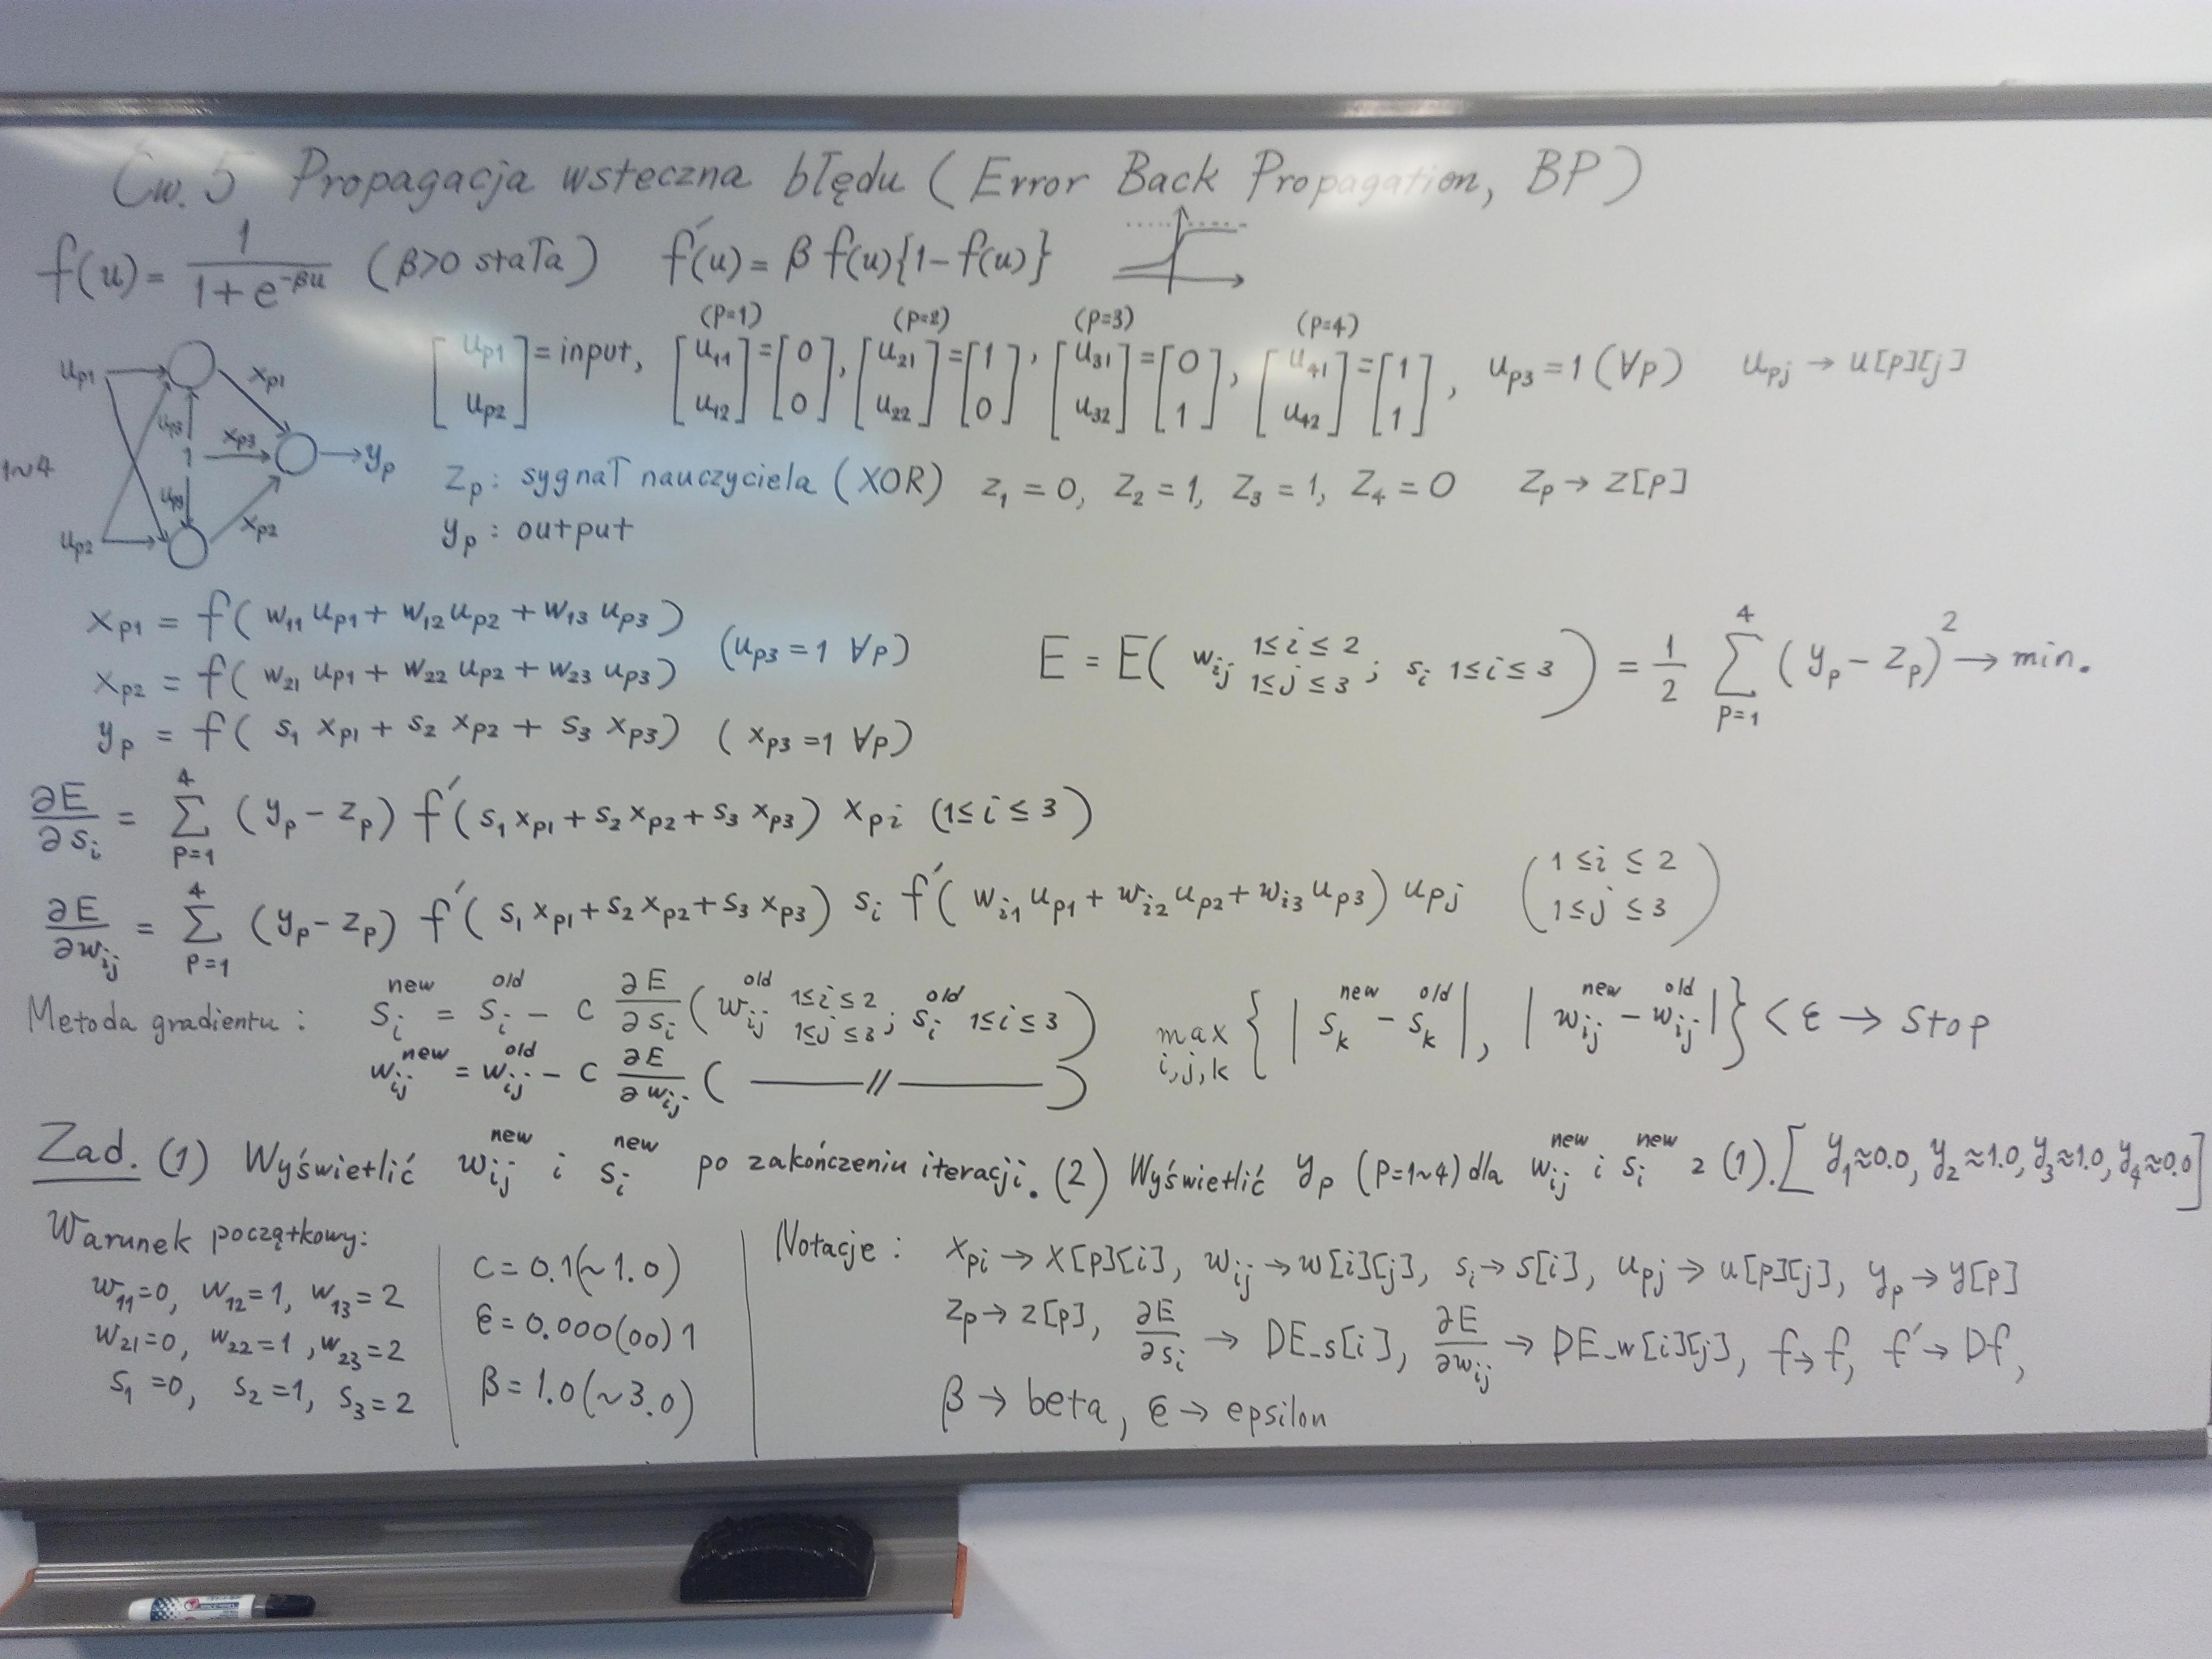 Ćw. 5 Propagacja wsteczna błędu (Error Back Propagation, BP)
f(u) = 1 / (1 + e^(-βu)) (β>0 stała) f′(u) = β f(u){1-f(u)}
(p=1) (p=2) (p=3) (p=4)
[u_p1 u_p2] = input, [u_11 u_12] = [0 0], [u_21 u_22] = [1 0], [u_31 u_32] = [0 1], [u_41 u_42] = [1 1], u_p3 = 1 (∀p) u_pj → u[p][j]
u_p1 x_p1
u_p3 x_p3
1~4 1 → y_p
u_p3
u_p2 x_p2
z_p : sygnał nauczyciela (XOR) z_1 = 0, z_2 = 1, z_3 = 1, z_4 = 0 z_p → z[p]
y_p : output
x_p1 = f( w_11 u_p1 + w_12 u_p2 + w_13 u_p3 )
x_p2 = f( w_21 u_p1 + w_22 u_p2 + w_23 u_p3 ) (u_p3 = 1 ∀p)
y_p = f( s_1 x_p1 + s_2 x_p2 + s_3 x_p3 ) ( x_p3 = 1 ∀p )
E = E( w_ij 1≤i≤2 1≤j≤3 ; s_i 1≤i≤3 ) = 1/2 Σ_{p=1}^{4} ( y_p - z_p )^2 → min.
∂E/∂s_i = Σ_{p=1}^{4} ( y_p - z_p ) f′( s_1 x_p1 + s_2 x_p2 + s_3 x_p3 ) x_pi (1≤i≤3)
∂E/∂w_ij = Σ_{p=1}^{4} ( y_p - z_p ) f′( s_1 x_p1 + s_2 x_p2 + s_3 x_p3 ) s_i f′( w_i1 u_p1 + w_i2 u_p2 + w_i3 u_p3 ) u_pj ( 1≤i≤2 1≤j≤3 )
Metoda gradientu : s_i^new = s_i^old - c ∂E/∂s_i ( w_ij^old 1≤i≤2 1≤j≤3 ; s_i^old 1≤i≤3 )
w_ij^new = w_ij^old - c ∂E/∂w_ij ( ——//—— )
max i,j,k { | s_k^new - s_k^old |, | w_ij^new - w_ij^old | } < ε → stop
Zad. (1) Wyświetlić w_ij^new i s_i^new po zakończeniu iteracji. (2) Wyświetlić y_p (p=1~4) dla w_ij^new i s_i^new z (1). [ y_1≈0.0, y_2≈1.0, y_3≈1.0, y_4≈0.0 ]
Warunek początkowy:
w_11=0, w_12=1, w_13=2
w_21=0, w_22=1, w_23=2
s_1=0, s_2=1, s_3=2
c = 0.1(~1.0)
ε = 0.000(00)1
β = 1.0(~3.0)
Notacje : x_pi → x[p][i], w_ij → w[i][j], s_i → s[i], u_pj → u[p][j], y_p → y[p]
z_p → z[p], ∂E/∂s_i → DE_s[i], ∂E/∂w_ij → DE_w[i][j], f → f, f′ → Df,
β → beta, ε → epsilon